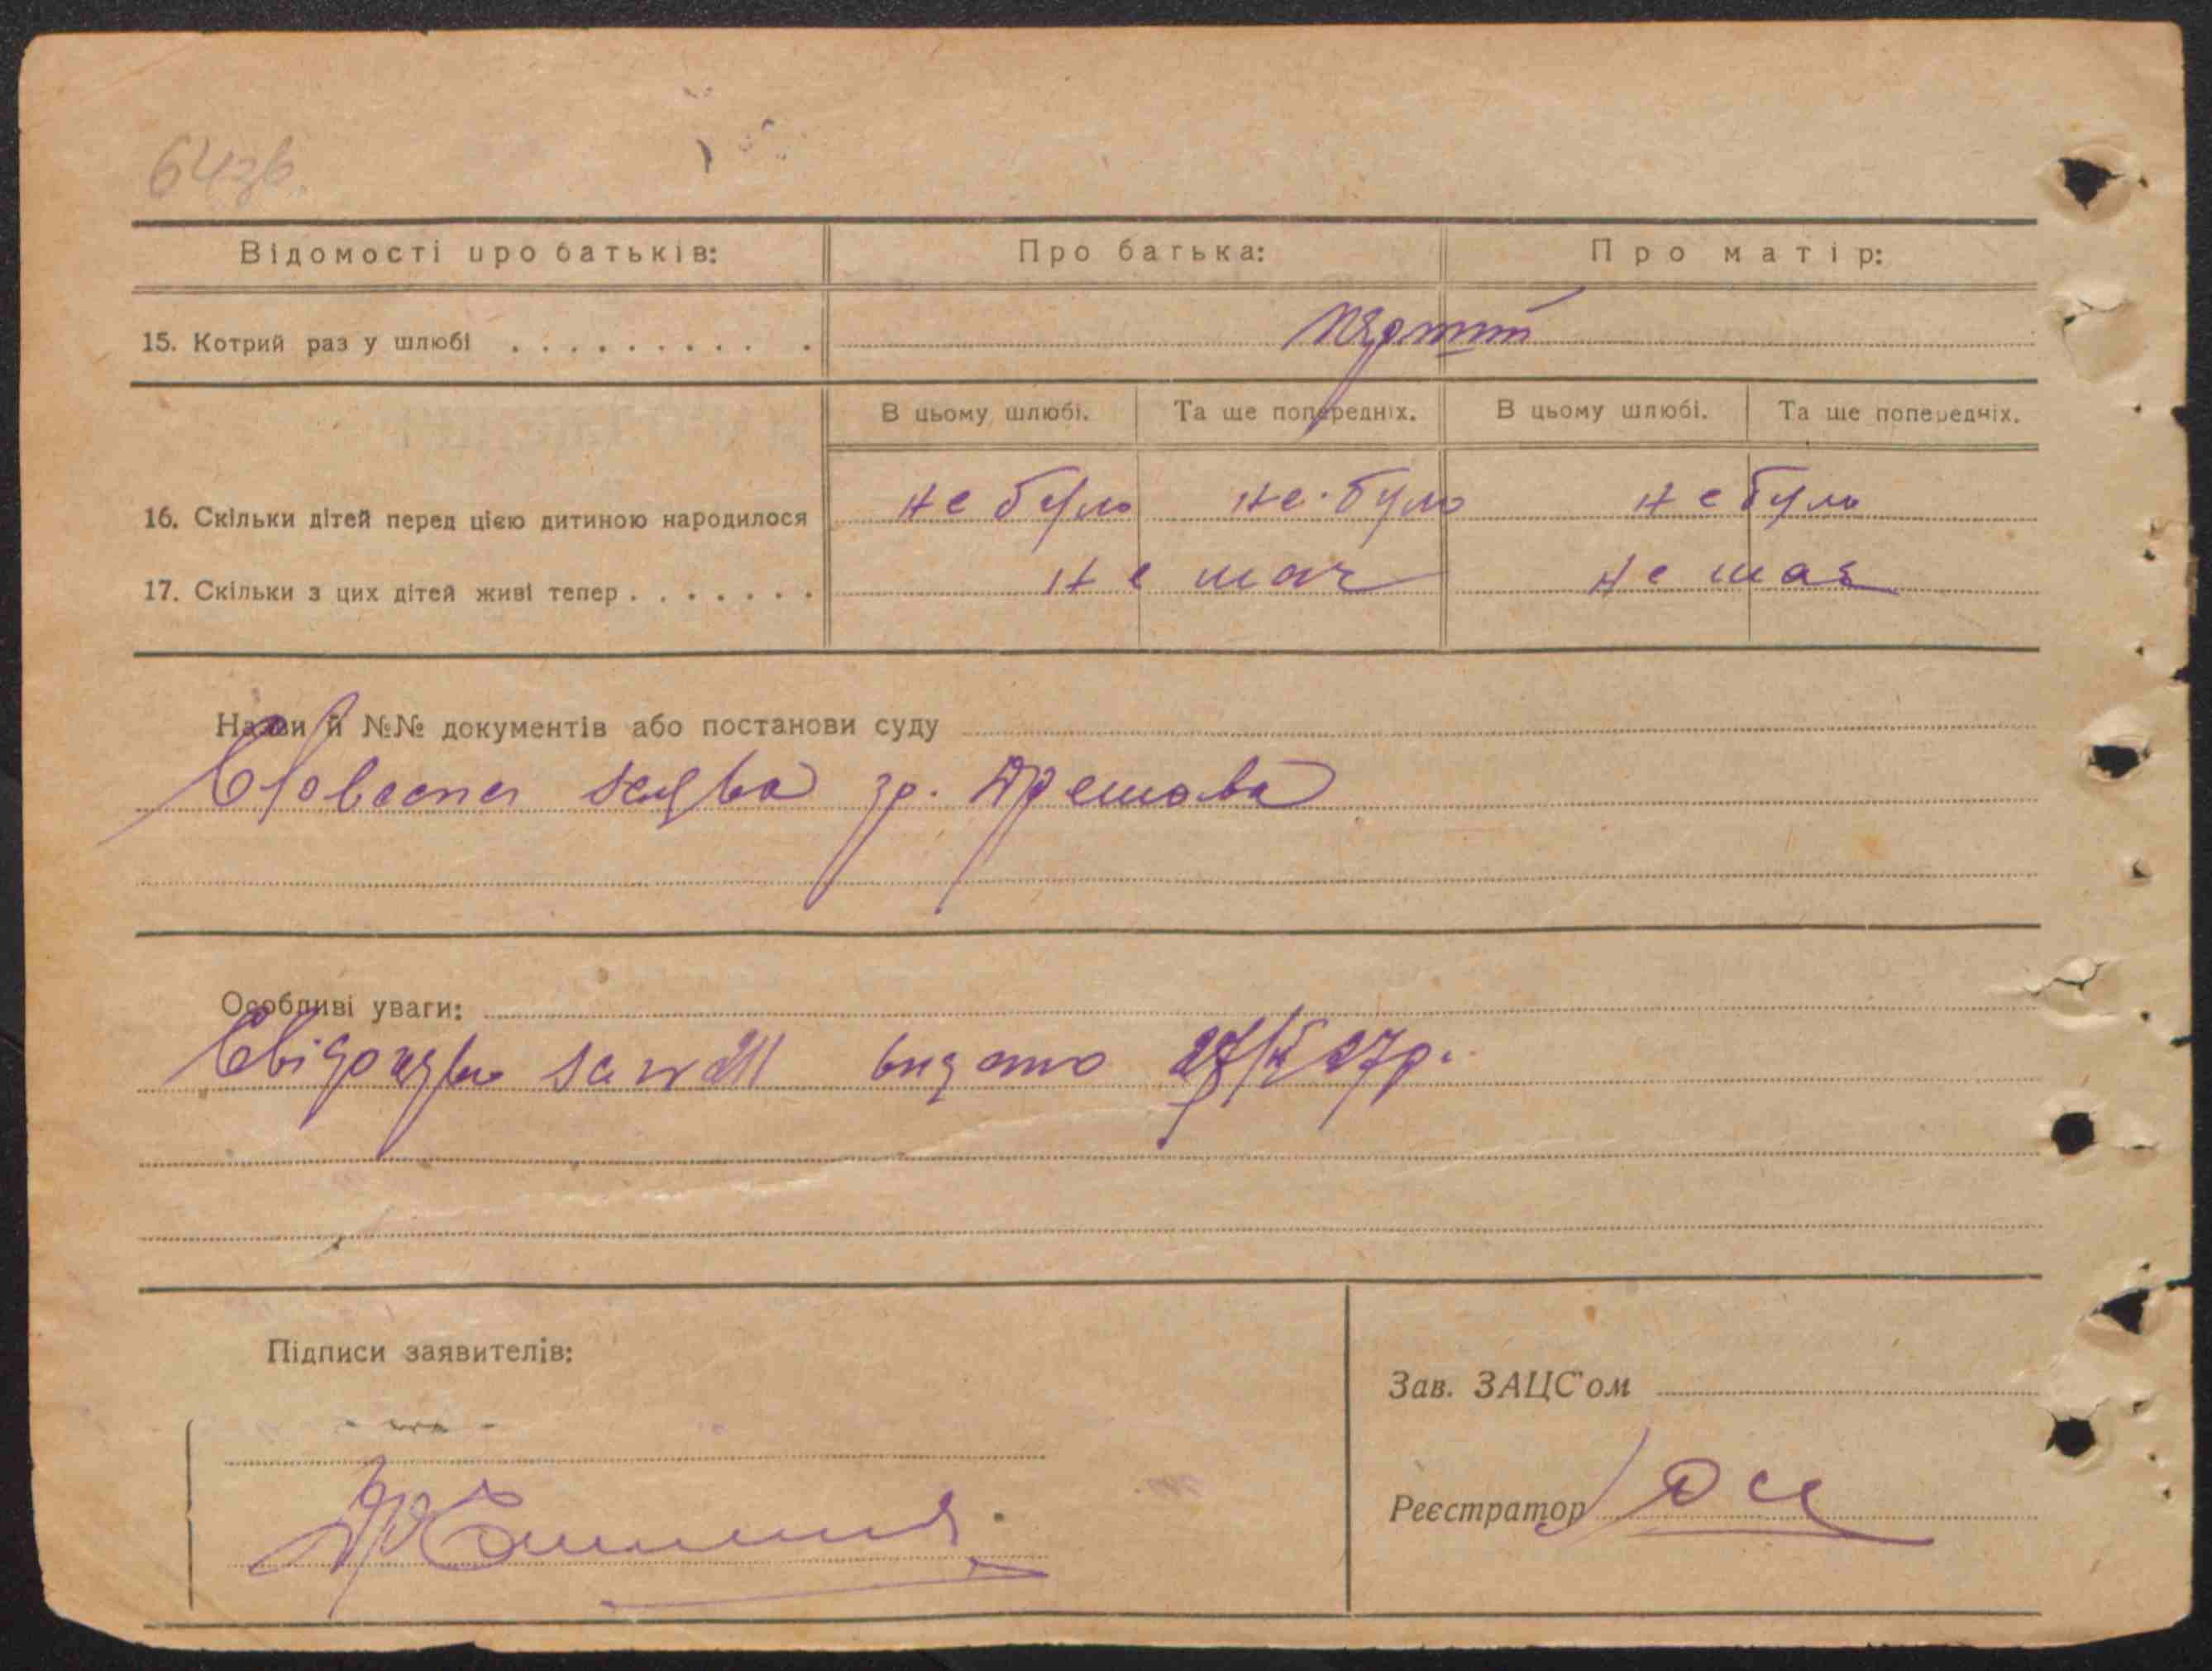 64зв.
Відомості про батьків: Про батька: Про матір:
15. Котрий раз у шлюбі . . . . . . . . . .
В цьому шлюбі. Та ще попередніх. В цьому шлюбі. Та ще попередніх.
16. Скільки дітей перед цією дитиною народилося не було не було не було
17. Скільки з цих дітей живі тепер . . . . . . . не має не має
Назви й №№ документів або постанови суду
Словесна заява гр.
Особливі уваги:
Свідоцтво за № видано 27р.
Підписи заявителів:
Зав. ЗАЦС'ом
Реєстратор